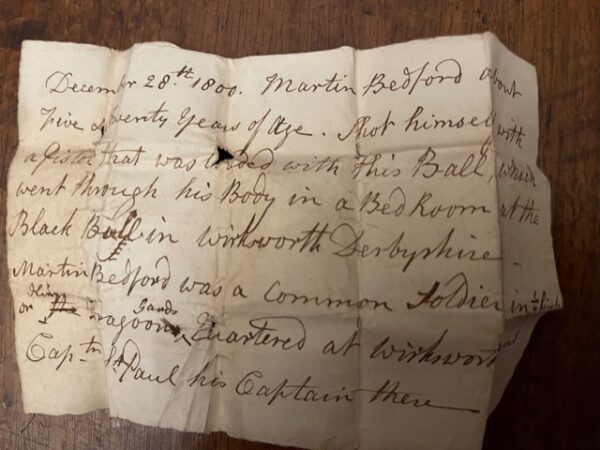 December 28.th 1800. Martin Bedford about
Five & Twenty Years of Age. Shot himself with
a Pistol that was loaded with this Ball, which
went through his Body in a Bed Room at the
Black Bull in Wirksworth Derbyshire
Martin Bedford was a common Soldier in
or Dragoon Quartered at Wirksworth
Capt.n St Paul his Captain there